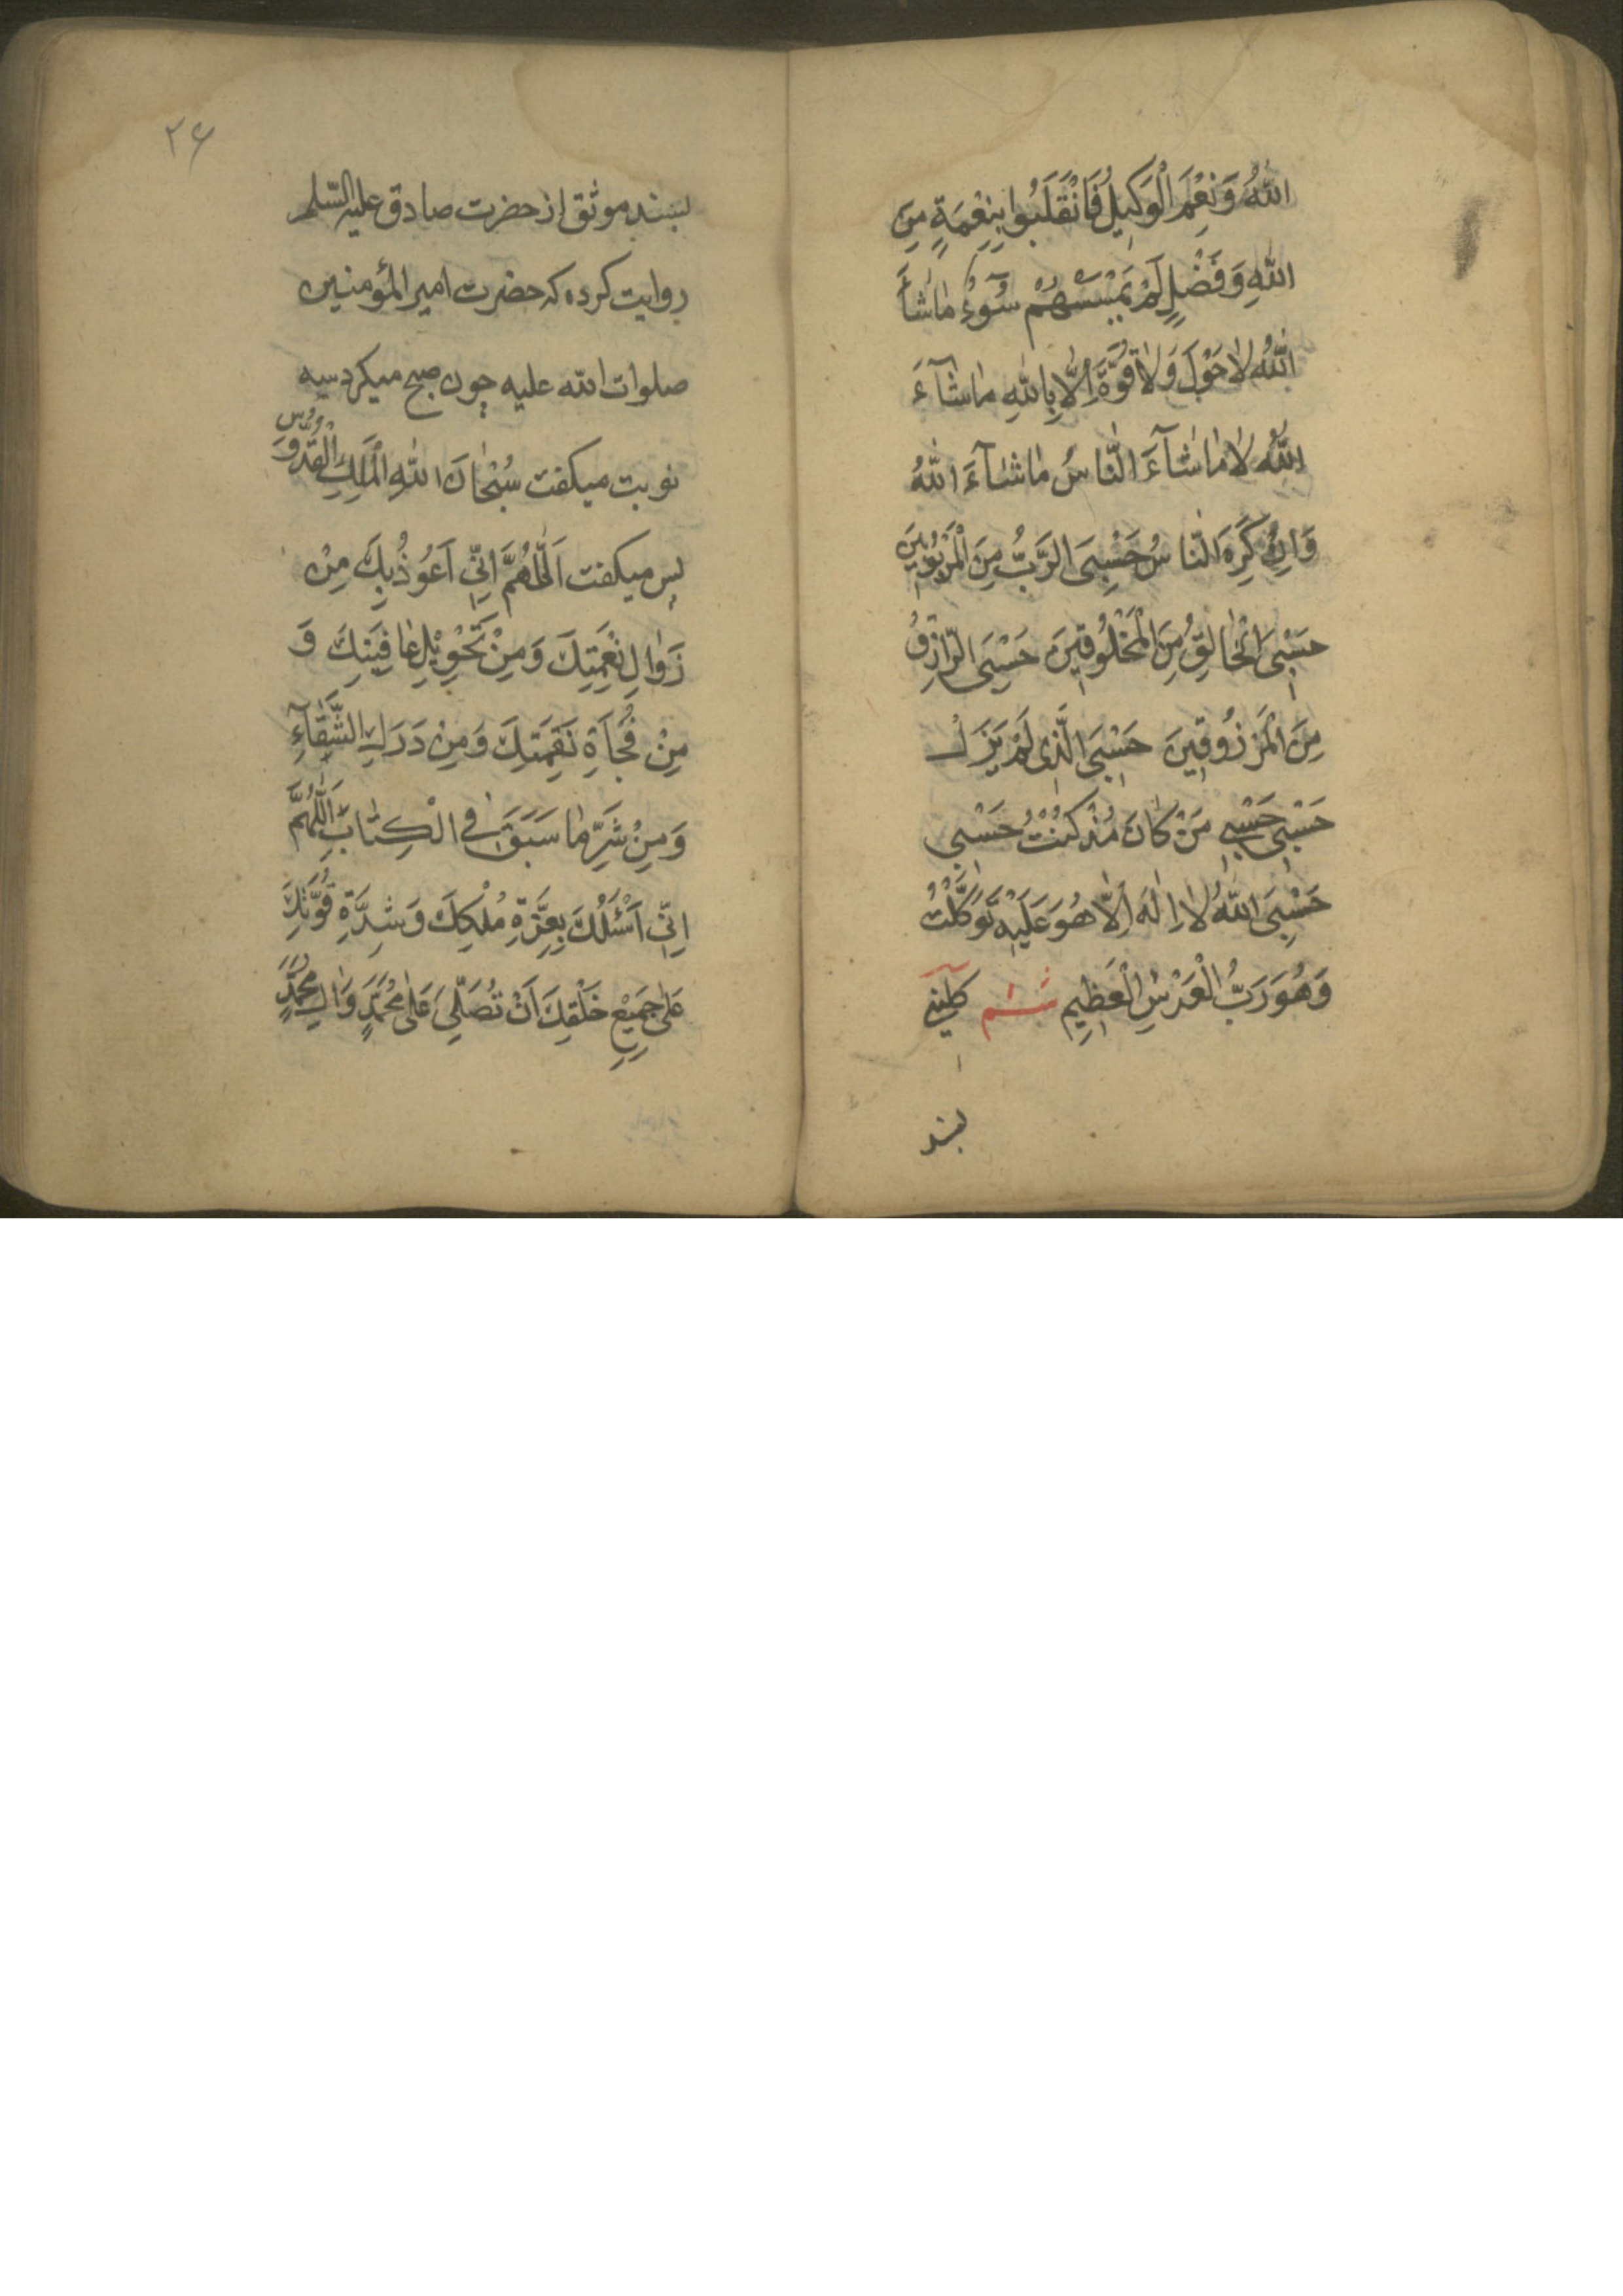 اللّٰهُ وَنِعْمَ الْوَكِيلُ فَانْقَلَبُوا بِنِعْمَةٍ مِنَ
اللّٰهِ وَفَضْلٍ لَمْ يَمْسَسْهُمْ سُوۤءٌ مٰا شٰاۤءَ
اللّٰهُ لٰا حَوْلَ وَلٰا قُوَّةَ اِلّٰا بِاللّٰهِ مٰا شٰاۤءَ
اللّٰهُ لٰا مٰا شٰاۤءَ النّٰاسُ مٰا شٰاۤءَ اللّٰهُ
وَاِنْ كَرِهَ النّٰاسُ حَسْبِىَ الرَّبُّ مِنَ الْمَرْبُوبِينَ
حَسْبِىَ الْخٰالِقُ مِنَ الْمَخْلُوقِينَ حَسْبِىَ الرّٰازِقُ
مِنَ الْمَرْزُوقِينَ حَسْبِىَ الَّذِى لَمْ يَزَلْ
حَسْبِى حَسْبِى مَنْ كٰانَ مُنْذُ كُنْتُ حَسْبِى
حَسْبِىَ اللّٰهُ لٰا اِلٰهَ اِلّٰا هُوَ عَلَيْهِ تَوَكَّلْتُ
وَهُوَ رَبُّ الْعَرْشِ الْعَظِيمِ ششم كلينى
بسند
٢۶
بسند موثق از حضرت صادق عليه السّلم
روايت كرده كه حضرت امير المؤمنين
صلوات اللّه عليه چون صبح ميكرد سه
نوبت ميكفت سُبْحٰانَ اللّٰهِ الْمَلِكِ الْقُدُّوسِ
پس ميكفت اَللّٰهُمَّ اِنِّى اَعُوذُ بِكَ مِنْ
زَوٰالِ نِعْمَتِكَ وَمِنْ تَحْوِيْلِ عٰافِيَتِكَ وَ
مِنْ فُجْاَةِ نَقِمَتِكَ وَمِنْ دَرَكِ الشَّقٰاۤءِ
وَمِنْ شَرِّ مٰا سَبَقَ فِى الْكِتٰابِ اَللّٰهُمَّ
اِنِّى اَسْئَلُكَ بِعِزَّةِ مُلْكِكَ وَشِدَّةِ قُوَّتِكَ
عَلٰى جَمِيْعِ خَلْقِكَ اَنْ تُصَلِّىَ عَلٰى مُحَمَّدٍ وَاٰلِ مُحَمَّدٍ